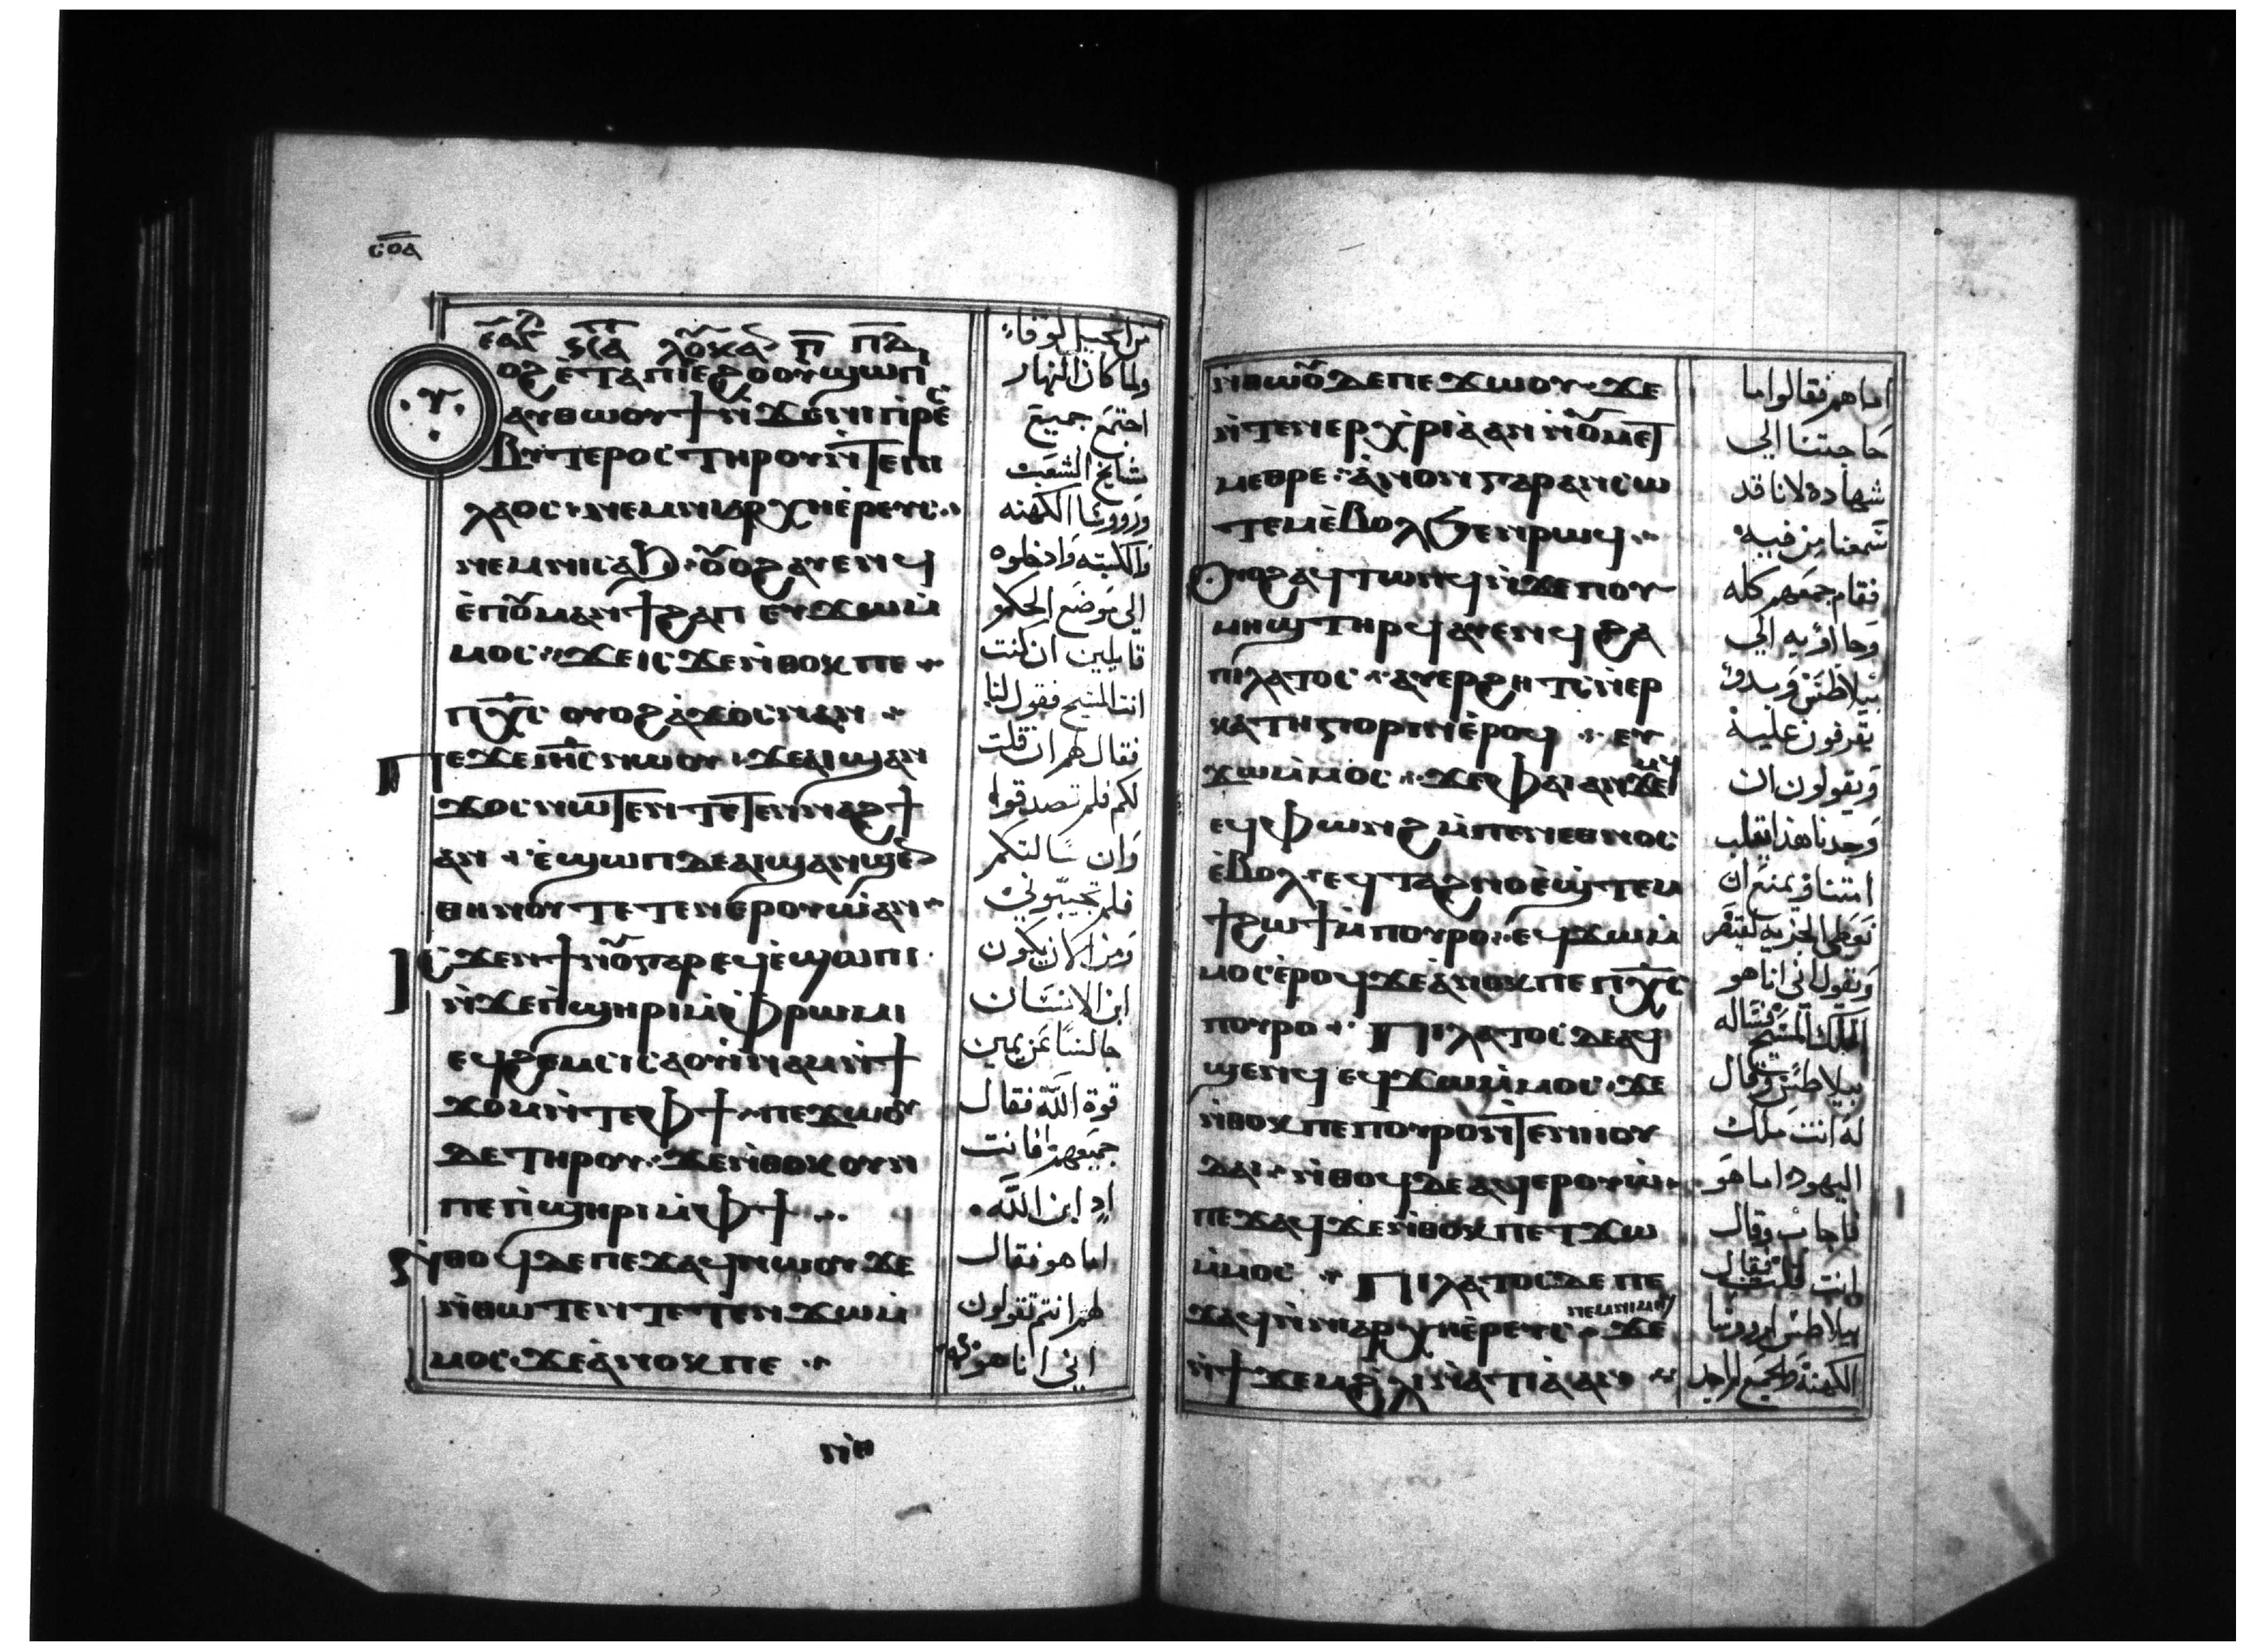 ⲥⲟⲁ
ⲟϩ ⲉⲧⲁ ⲡⲓⲉϩⲟⲟⲩ ϣⲱⲡⲓ
ⲁⲩⲑⲱⲟⲩϯ ⲛ̀ϫⲉⲛⲓⲡⲣⲉⲥ
ⲃⲩⲧⲉⲣⲟⲥ ⲧⲏⲣⲟⲩ ⲛ̀ⲧⲉⲡⲓ
ⲗⲁⲟⲥ ⲛⲉⲙⲛⲓⲁⲣⲭⲏⲉ̀ⲣⲉⲩⲥ
ⲛⲉⲙⲛⲓⲥⲁϧ ⲟⲩⲟϩ ⲁⲩⲉⲛϥ
ⲉ̀ⲡⲟⲩⲙⲁⲛϯϩⲁⲡ ⲉⲩϫⲱⲙ̀
ⲙⲟⲥ ϫⲉⲓⲥϫⲉ ⲛ̀ⲑⲟⲕ ⲡⲉ
ⲡⲭ̅ⲥ ⲟⲩⲟϩ ⲁ̀ϫⲟⲥ ⲛⲁⲛ
ⲡⲉϫⲉ ⲓⲏ̅ⲥ ⲛⲱⲟⲩ ϫⲉⲁⲓϣⲁⲛ
ϫⲟⲥ ⲛⲱⲧⲉⲛ ⲧⲉⲧⲉⲛⲛⲁϩϯ
ⲁⲛ ⲉ̀ϣⲱⲡ ⲇⲉ ⲁⲓϣⲁⲛϣⲉ
ⲑⲏⲛⲟⲩ ⲧⲉⲧⲉⲛⲉⲣⲟⲩⲱ̀ ⲁⲛ
ⲓⲥϫⲉⲛ ϯⲛⲟⲩ ⲅⲁⲣ ⲉϥⲉ̀ϣⲱⲡⲓ
ⲛ̀ϫⲉⲡϣⲏⲣⲓ ⲙ̀ⲫⲣⲱⲙⲓ
ⲉϥϩⲉⲙⲥⲓ ⲥⲁⲟⲩⲓ̀ⲛⲁⲙ ⲛ̀ϯ
ϫⲟⲙ ⲛ̀ⲧⲉⲫϯ ⲡⲉϫⲱⲟⲩ
ⲇⲉ ⲧⲏⲣⲟⲩ ϫⲉⲛ̀ⲑⲟⲕ ⲟⲩⲛ
ⲡⲉ ⲡϣⲏⲣⲓ ⲙ̀ⲫϯ
ⲛ̀ⲑⲟϥ ⲇⲉ ⲡⲉϫⲁϥ ⲛⲱⲟⲩ ϫⲉ
ⲛ̀ⲑⲱⲧⲉⲛ ⲧⲉⲧⲉⲛϫⲱⲙ̀
ⲙⲟⲥ ϫⲉⲁ̀ⲛⲟⲕ ⲡⲉ
ⲛ̀ⲑ
من انجيل لوقا
ولما كان النهار
اجتمع جميع
مشايخ الشعب
وروسا الكهنه
والكتبه وادخلوه
الى موضع الحكم
قايلين ان كنت
انت المسيح فقول لنا
فقال لهم ان قلت
لكم فلم تصدقوا
وان سالتكم
فلم تجيبوني
ومن الان يكون
ابن الانسان
جالسا عن يمين
قوة الله فقال
جميعهم فانت
اد ابن الله
اما هو فقال
لهم انتم تقولون
اني انا هو
ⲛ̀ⲑⲱⲟⲩ ⲇⲉ ⲡⲉϫⲱⲟⲩ ϫⲉ
ⲛ̀ⲧⲉⲛⲉⲣⲭⲣⲓⲁ ⲁⲛ ⲛ̀ⲟⲩⲙⲉⲧ
ⲙⲉⲑⲣⲉ ⲁ̀ⲛⲟⲛ ⲅⲁⲣ ⲁⲛⲥⲱ
ⲧⲉⲙ ⲉ̀ⲃⲟⲗϧⲉⲛ ⲣⲱϥ
ⲟⲩⲟϩ ⲁϥⲧⲱⲛϥ ⲛ̀ϫⲉⲡⲟⲩ
ⲙⲏϣ ⲧⲏⲣϥ ⲁⲩⲉⲛϥ ϩⲁ
ⲡⲓⲗⲁⲧⲟⲥ ⲁⲩⲉⲣϩⲏⲧⲥ ⲛ̀ⲉⲣ
ⲕⲁⲧⲏⲅⲟⲣⲓⲛ ⲉ̀ⲣⲟϥ ⲉⲩ
ϫⲱⲙ̀ⲙⲟⲥ ϫⲉⲫⲁⲓ ⲁⲛϫⲉⲙϥ
ⲉϥⲫⲱⲛϩ ⲙ̀ⲡⲉⲛⲉⲑⲛⲟⲥ
ⲉ̀ⲃⲟⲗ ⲉϥⲧⲁϩⲛⲟ ⲉ̀ϣⲧⲉⲙ
ϯϩⲱϯ ⲙ̀ⲡⲟⲩⲣⲟ ⲉϥϫⲱⲙ̀
ⲙⲟⲥ ⲉ̀ⲣⲟϥ ϫⲉⲁ̀ⲛⲟⲕ ⲡⲉ ⲡⲭ̅ⲥ
ⲡⲟⲩⲣⲟ ⲡⲓⲗⲁⲧⲟⲥ ⲇⲉ ⲁϥ
ϣⲉⲛϥ ⲉϥϫⲱⲙ̀ⲙⲟⲥ ϫⲉ
ⲛ̀ⲑⲟⲕ ⲡⲉ ⲡⲟⲩⲣⲟ ⲛ̀ⲧⲉⲛⲓⲓⲟⲩ
ⲇⲁⲓ ⲛ̀ⲑⲟϥ ⲇⲉ ⲁϥⲉⲣⲟⲩⲱ̀
ⲡⲉϫⲁϥ ϫⲉⲛ̀ⲑⲟⲕ ⲡⲉⲧϫⲱ
ⲙ̀ⲙⲟⲥ ⲡⲓⲗⲁⲧⲟⲥ ⲇⲉ ⲡⲉ
ϫⲁϥ ⲛ̀ⲛⲓⲁⲣⲭⲏⲉ̀ⲣⲉⲩⲥ ⲛⲉⲙⲛⲓⲙⲏϣ ϫⲉ
ⲛ̀ϯϫⲉⲙ ϩⲗⲓ ⲛ̀ⲉⲧⲓⲁ ⲁⲛ
اما هم فقالوا ما
حاجتنا الي
شهاده لانا قد
سمعنا من فيه
فقام جمعهم كله
وجااو به الي
بيلاطس وبدو
يقرفون عليه
ويقولون ان
وجدنا هذا يقلب
امتنا ويمنع ان
نعطي الجزيه لقيصر
ويقول اني انا هو
الملك المسيح فساله
بيلاطس وقال
له انت ملك
اليهود اما هو
فاجاب وقال
انت قلت فقال
بيلاطس لروسا
الكهنة والجمع لم اجد